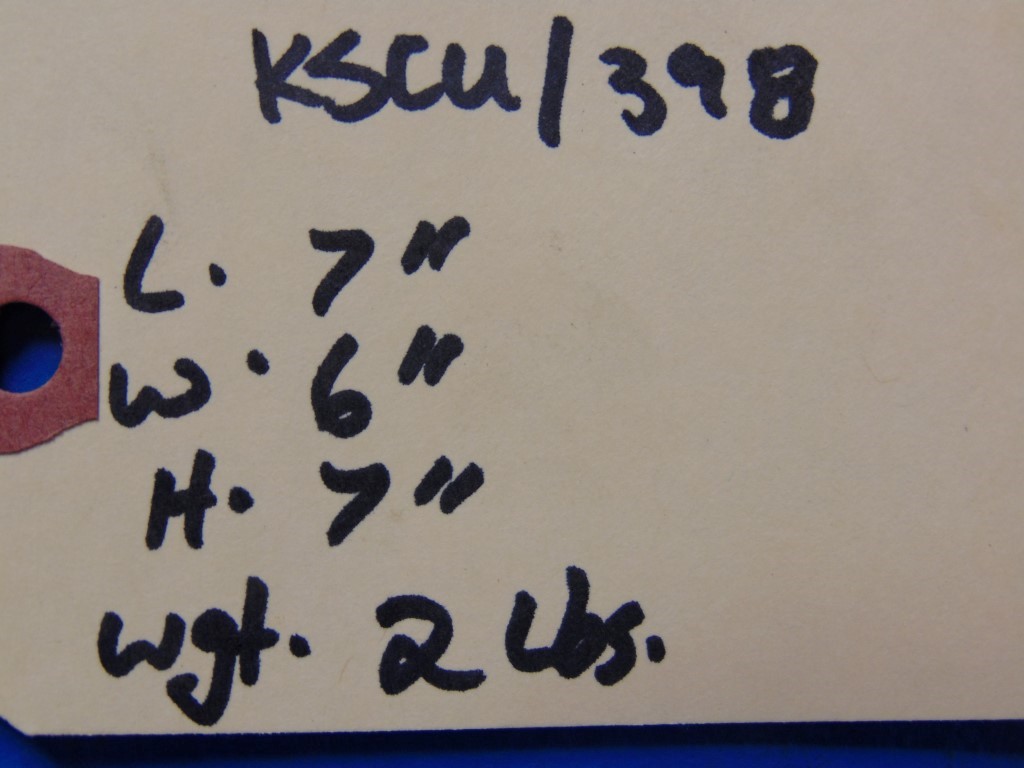 KSCU/398
L. 7"
W. 6"
H. 7"
wgt. 2 Lbs.